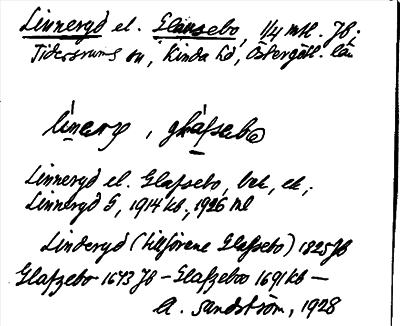 Linneryd el. Glafsebo, 1/4 mtl. Jb;
Tidersrums sn, Kinda hd, Östergötl. län
lìnery, glàfsebo
Linneryd el. Glafsebo, bek, ek,
Linneryd G, 1914 kb, 1926 tel
Linderyd (tillförene Glafsebo) 1825 Jb
Glafzebo 1673 Jb – Glafzeboo 1691 kb –
A. Sandström, 1928